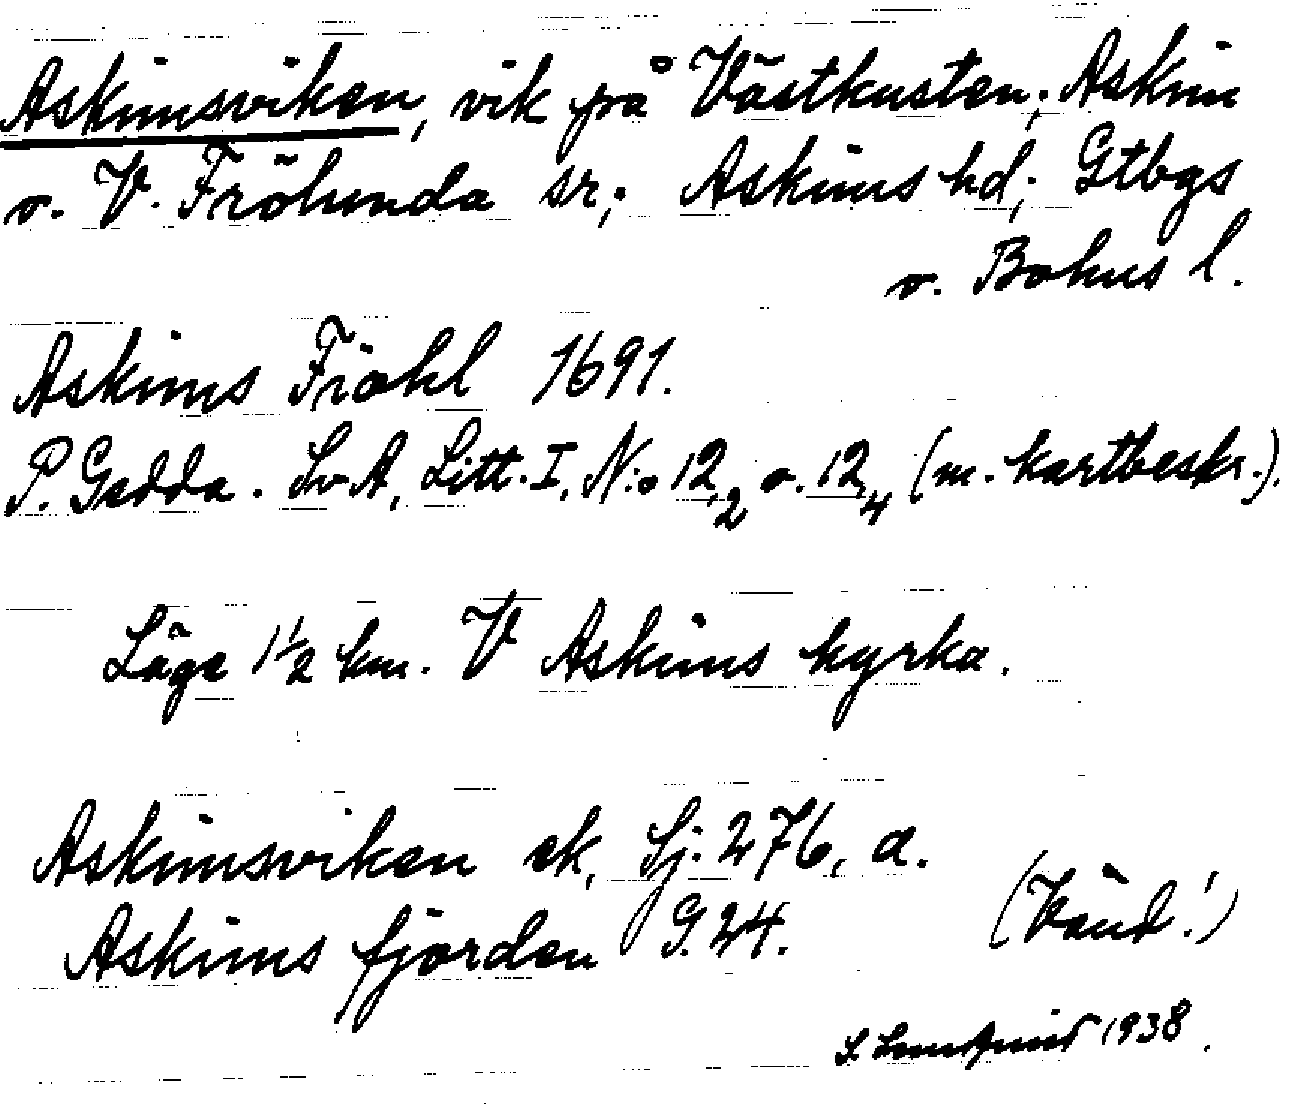 Askimsviken, vik på Västkusten; Askim
o. V. Frölunda sr; Askims hd; Gtbgs
o. Bohus l.
Askims Fiöhl 1691.
P. Gedda. Sv A, Litt. I, N:o 12,2 o. 12,4 (m. kartbeskr.).
Läge 1½ km. V Askims kyrka.
Askimsviken ek, Sj. 276, a.
Askims fjorden G. 24.
(Vänd!)
S. 1938.